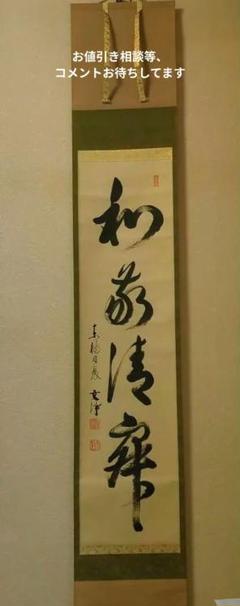 お値引き相談等、
コメントお待ちしてます
和敬清寂